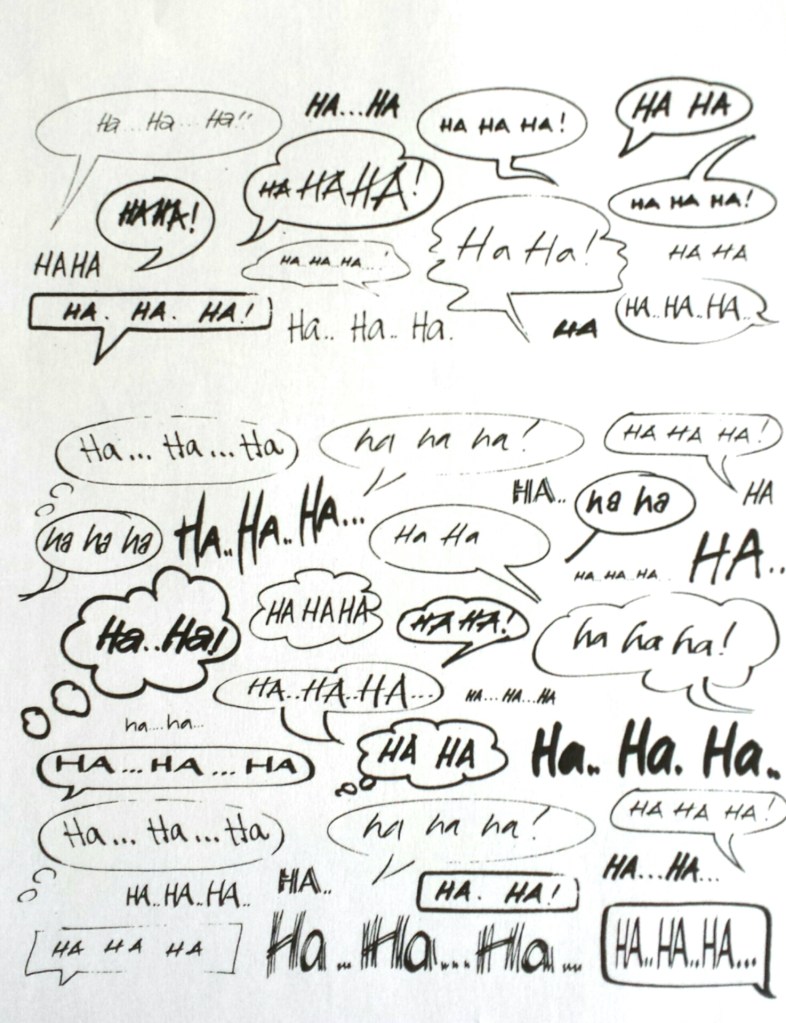 HA...HA
HA HA
Ha...Ha...Ha!!
HA HA HA!
HA HAHA!
HA HA HA!
HAHA!
Ha Ha!
HA HA
HAHA
HA HA HA...!
HA..HA..HA..
HA. HA. HA!
Ha.. Ha.. Ha.
HA
Ha... Ha...Ha
ha ha ha!
HA HA HA!
HA..
HA
ha ha
HA..HA..HA...
ha ha ha
Ha Ha
HA..
HA..HA..HA..
HA HA HA
HA HA!
Ha..Ha!
ha ha ha!
HA..HA.HA...
HA...HA...HA
ha....ha...
HA HA
Ha.. Ha. Ha..
HA...HA...HA
Ha... Ha...Ha
ha ha ha!
HA HA HA!
HA...HA...
HA..
HA..HA..HA..
HA. HA!
HA HA HA
Ha...Ha....Ha...
HA..HA..HA...